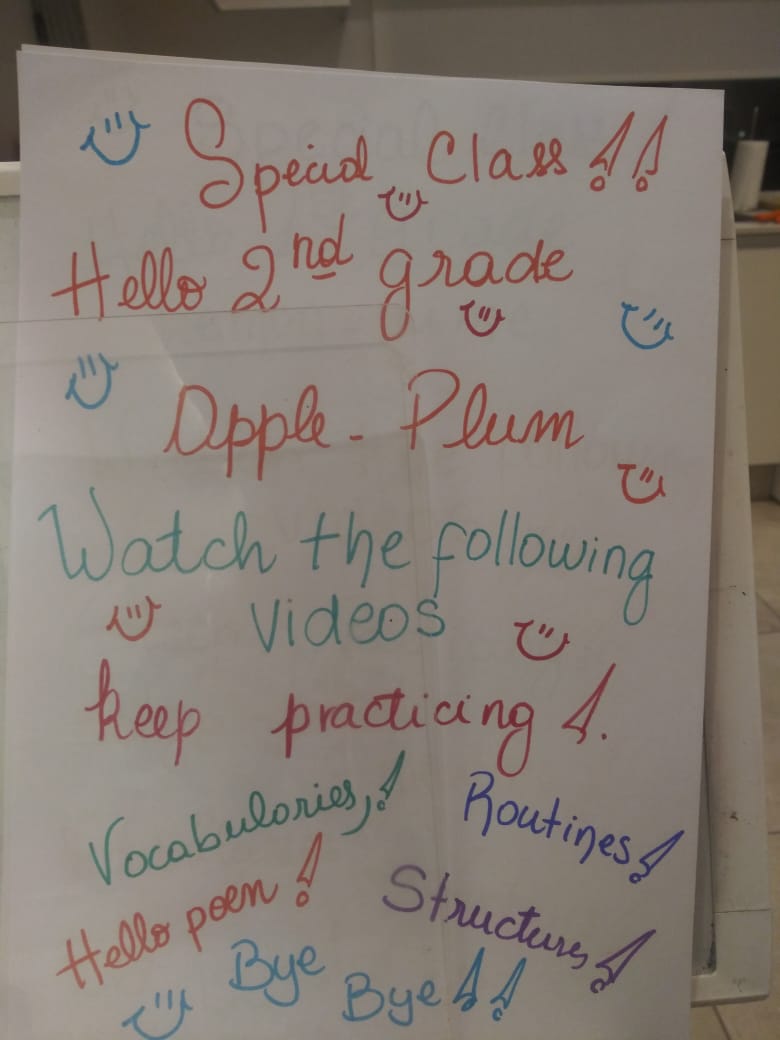 Special Class!!
Hello 2nd grade
Apple - Plum
Watch the following
videos
keep practicing!.
Vocabularies,! Routines!
Hello poem! Structures!
Bye Bye!!